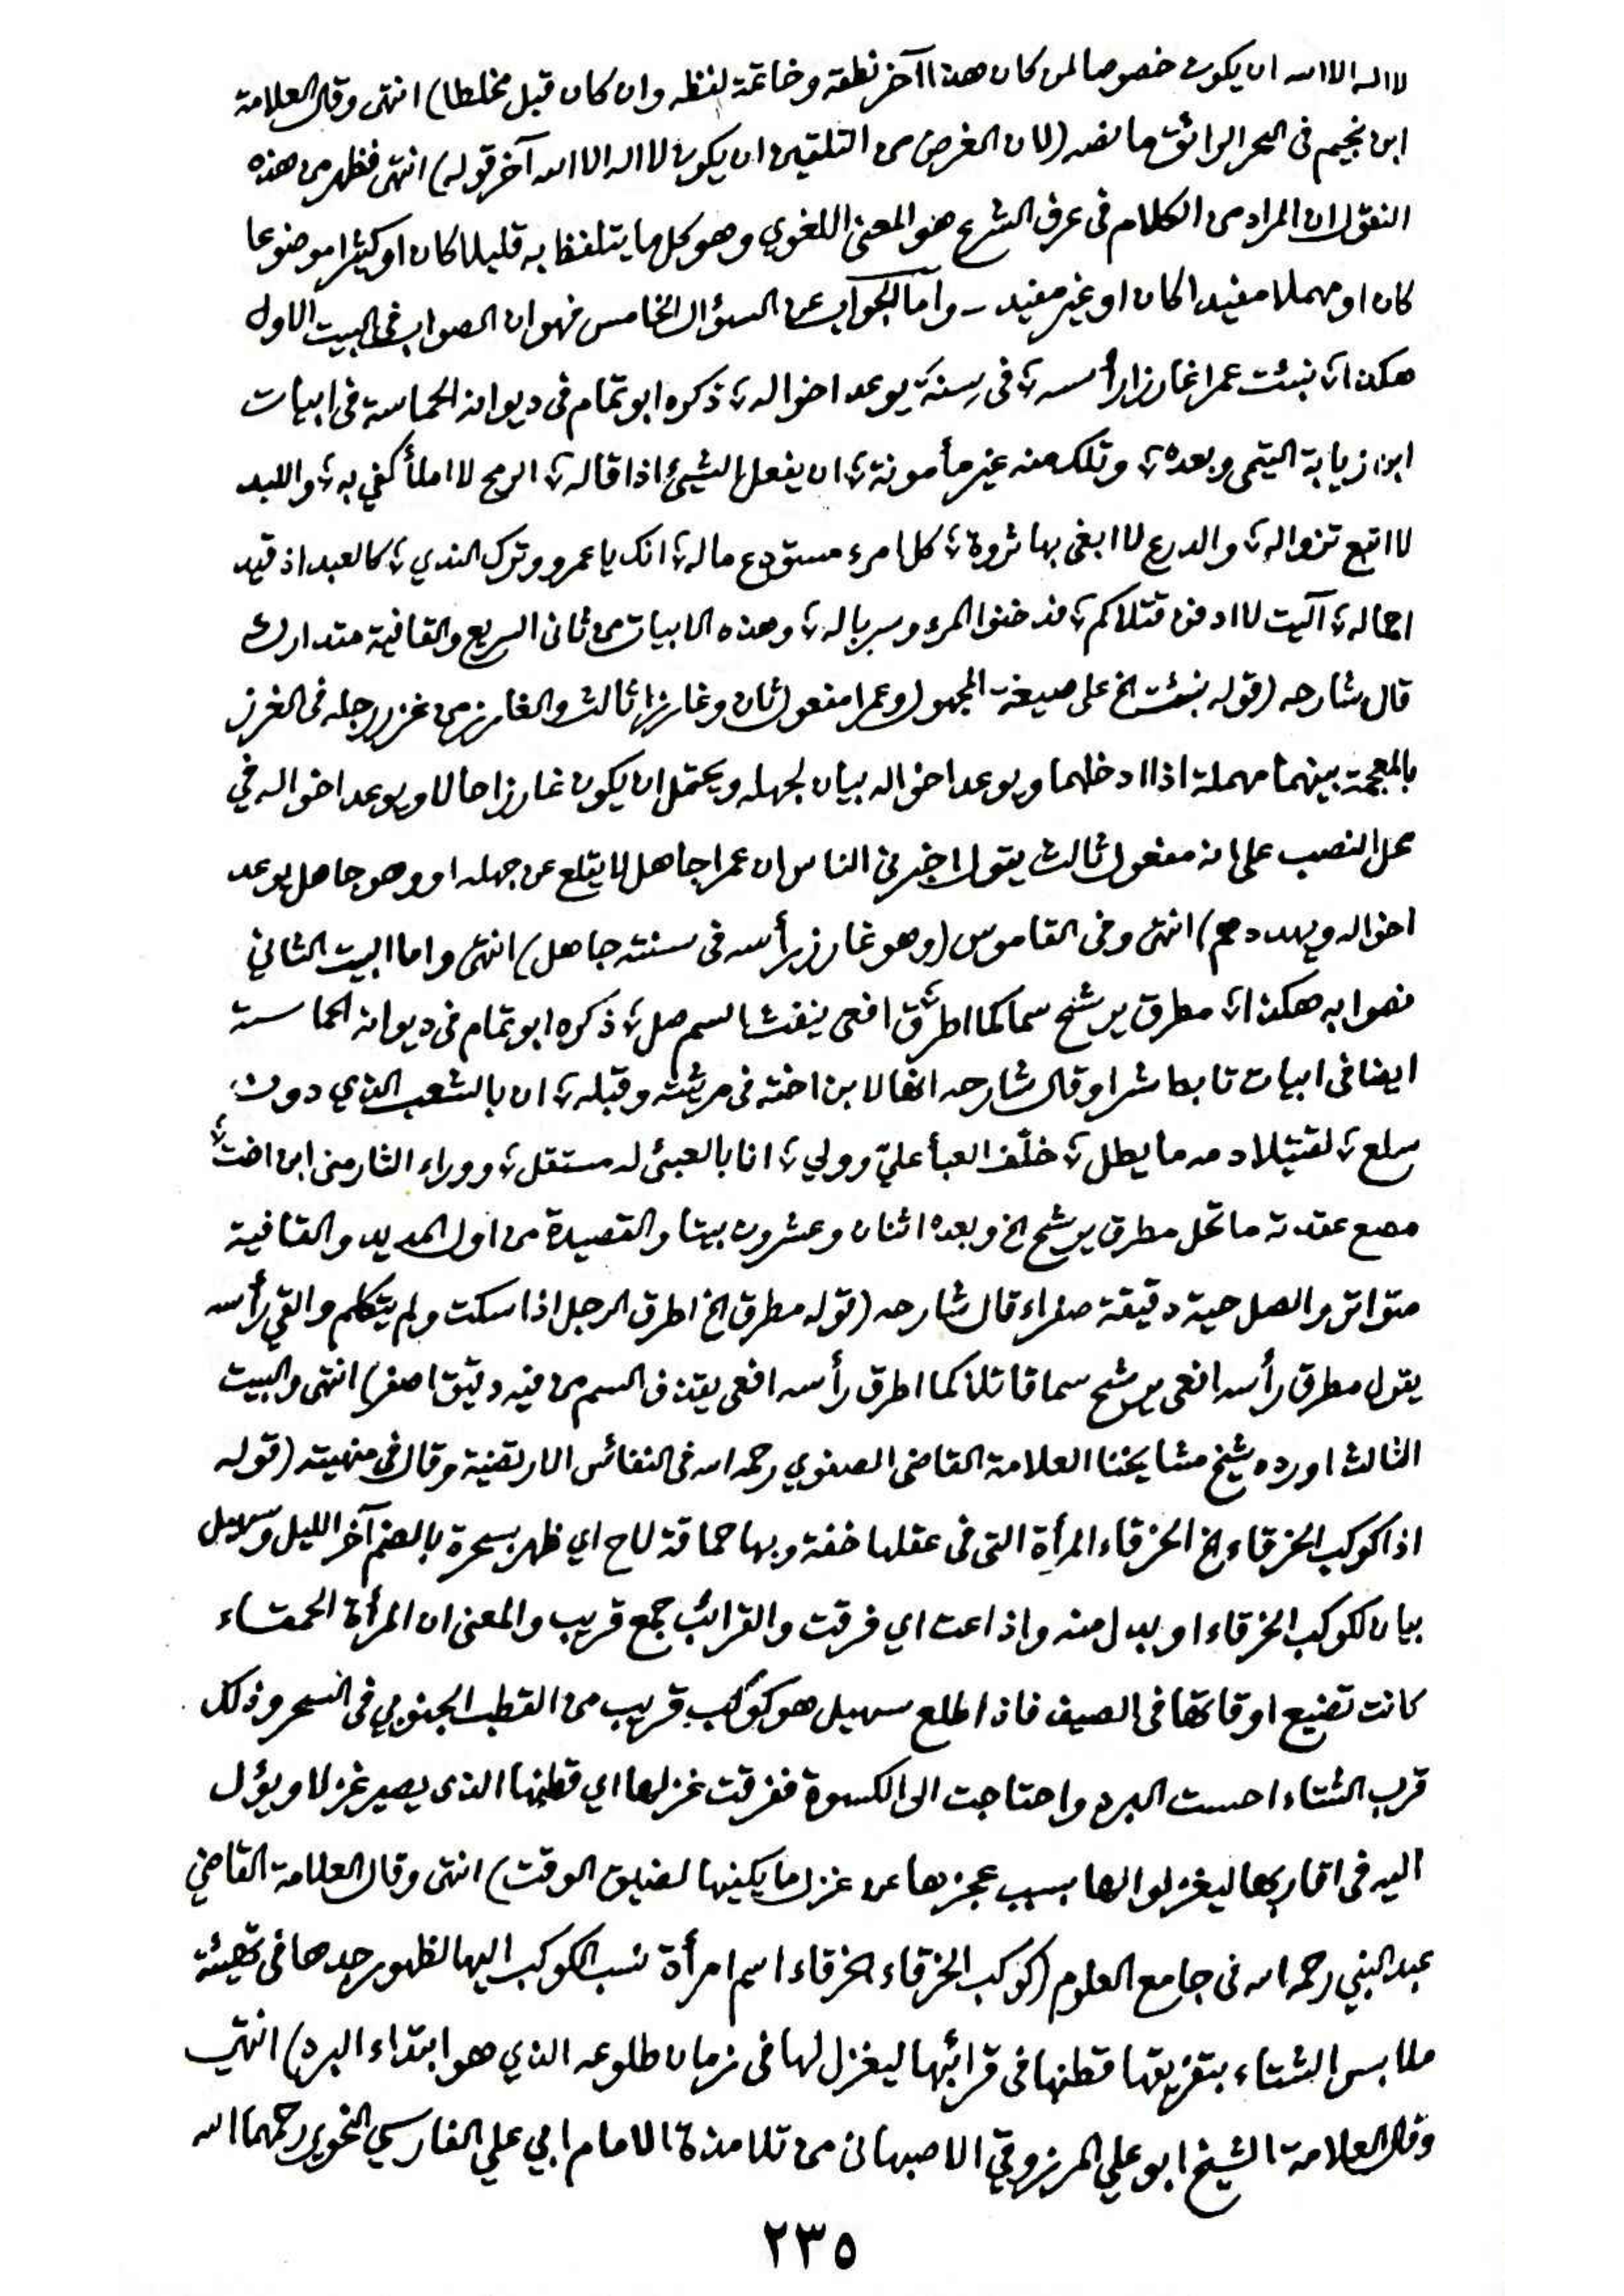 لا اله الا الله ان يكون خصوصا لمن كان هذا آخر نطقه وخاتمة لفظه وان كان قبل مخلطا) انتهى وقال العلامة
ابن نجيم في البحر الرائق ما نصه (لان الغرض من التلقين ان يكون لا اله الا الله آخر قوله) انتهى فظهر من هذه
النقول ان المراد من الكلام في عرف الشرع هو المعنى اللغوي وهو كل ما يتلفظ به قليلا كان او كثيرا موضوعا
كان او مهملا مفيدا كان او غير مفيد - واما الجواب عن السؤال الخامس فهو ان الصواب في البيت الاول
هكذا؛ نبئت عمرا غارزا رأسه؛ في سِنَةٍ يوعد اخواله؛ ذكره ابو تمام في ديوانه الحماسة في ابيات
ابن زيابة التيمى وبعده؛ وتلك منه غير مأمونة؛ ان يفعل الشيئ اذا قاله؛ الرمح لا املأ كفي به؛ واللبد
لا اتبع تزواله؛ والدرع لا ابغى بها ثروة؛ كل امرء مستودع ماله؛ انك يا عمرو وترك الندي؛ كالعبد اذ قيد
اجماله؛ آليت لا ادفن قتلاكم؛ فدخنوا المرء وسرباله؛ وهذه الابيات من ثاني السريع والقافية متدارك
قال شارحه (قوله نبئت الخ على صيغة المجهول وعمرا مفعول ثان وغارزا ثالث والغارز من غرز رجله في الغرز
بالمعجمة بينهما مهملة اذا ادخلهما ويوعد اخواله بيان لجهله ويحتمل ان يكون غارزا حالا ويوعد اخواله في
محل النصب على انه مفعول ثالث يقول اخبرني الناس ان عمرا جاهل لا يقلع عن جهله او وهو جاهل يوعد
اخواله ويهددهم) انتهى وفي القاموس (وهو غارز رأسه في سنته جاهل) انتهى واما البيت الثاني
فصوابه هكذا؛ مطرق يرشح سما كما اطرق؛ افعى ينفث السم صل؛ ذكره ابو تمام في ديوانه الحماسة
ايضا في ابيات تابط شرا وقال شارحه انها لابن اخته في مرثيته وقبله؛ ان بالشعب الذي دون
سلع؛ لقتيلا دمه ما يطل؛ خلّف العبأ عليّ وولي؛ انا بالعبئ له مستقل؛ ووراء الثار مني ابن اخت؛
مصع عقدته ما تحل مطرق يرشح الخ وبعده اثنان وعشرون بيتا والقصيدة من اول المديد والقافية
متواتر والصل حية دقيقة صفراء قال شارحه (قوله مطرق الخ اطرق الرجل اذا سكت ولم يتكلم والقي رأسه
يقول مطرق رأسه افعى يرشح سما قاتلا كما اطرق رأسه افعى يقذف السم من فيه دقيق اصفر) انتهى والبيت
الثالث اورده شيخ مشايخنا العلامة القاضي الصفوي رحمه الله في النفائس الارتضية وقال في منهيته (قوله
اذا كوكب الخرقاء الخ الخرقاء المرأة التى في عقلها خفة وبها حماقة لاح اي ظهر بسحرة بالضم آخر الليل وسهيل
بيان لكوكب الخرقاء او بدل منه واذاعت اي فرقت والقرائب جمع قريب والمعنى ان المرأة الحمقاء
كانت تضيع اوقاتها في الصيف فاذا طلع سهيل هو كوكب قريب من القطب الجنوبي في السحر وذلك
قرب الشتاء احست البرد واحتاجت الى الكسوة ففرقت غزلها اي قطنها الذى يصير غزلا ويؤل
اليه في اقاربها ليغزلوا لها بسبب عجزها عن غزل ما يكفيها لضيق الوقت) انتهى وقال العلامة القاضي
عبد النبي رحمه الله في جامع العلوم (كوكب الخرقاء الخرقاء اسم امرأة نسب الكوكب اليها لظهور جدها في تهيئة
ملابس الشتاء بتفريقها قطنها في قرائبها ليغزل لها في زمان طلوعه الذي هو ابتداء البرد) انتهى
وقال العلامة الشيخ ابو علي المرزوقي الاصبهاني من تلامذة الامام ابي علي الفارسي النحوي رحمهما الله
٢٣٥